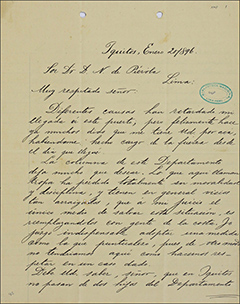 Iquitos, Enero 20/896.
Sor Dr D. N. de Piérola
Lima.
Muy respetado señor:
Diferentes causas han retardado mi
llegada á este puerto, pero felizmente hace
ya muchos dias que me tiene Ud. por acá,
habiéndome hecho cargo de la fuerza desde
el dia que llegué.
La columna de este Departamento
deja mucho que desear. Lo que aquí llaman
tropa ha perdido totalmente su moralidad
y disciplina, y tienen en general vicios
tan arraigados, que á mi juicio el
único modo de salvar esta situacion, es
reemplazándolos con gente de la costa. Yo
juzgo indispensable adoptar esta medida
como la que puntualizo, pues de otro modo
no tendríamos aquí como hacernos res-
petar en un caso dado.
Debe Ud. saber, señor, que en Iquitos
no pasan de dos hijos del Departamento